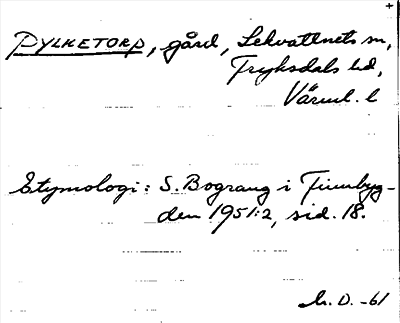 PYLKETORP, gård, Lekvattnets sn,
Fryksdals hd,
Värml. l
Etymologi: S. Bograng i Finnbyg-
den 1951:2, sid. 18.
M. D. -61